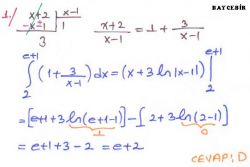 BAYCEBİR
1./ x+2 | x-1
-x-1 | 1
3
x+2/x-1 = 1 + 3/x-1
∫₂^(e+1) (1 + 3/x-1) dx = (x + 3 ln|x-1|) |₂^(e+1)
= [e+1 + 3 ln(e+1-1)] - [2 + 3 ln(2-1)]
1 0
= e+1+3-2 = e+2
CEVAP: D